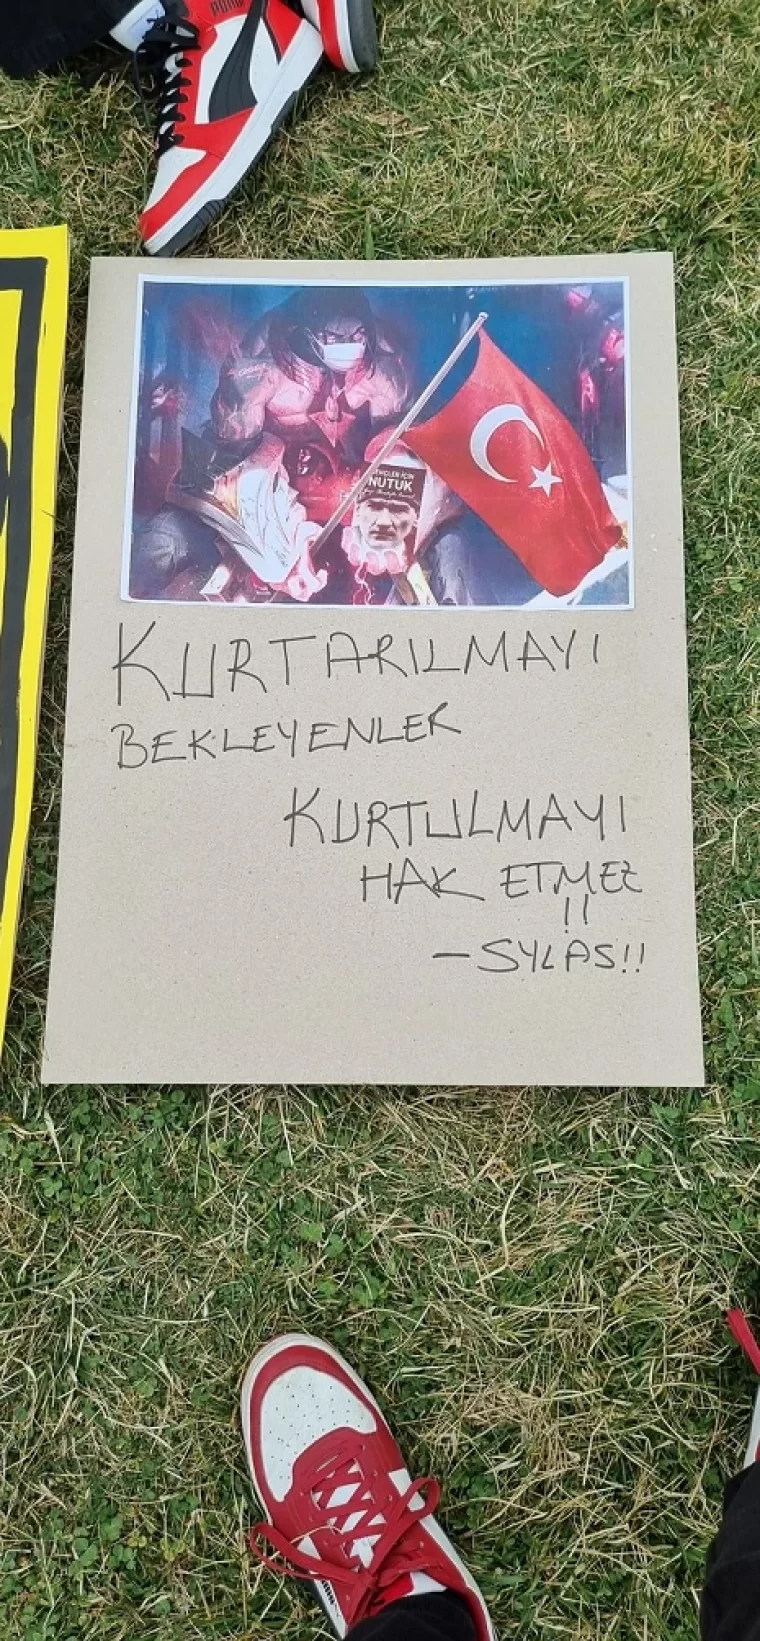 PUMA
GENÇLER İÇİN
NUTUK
KURTARILMAYI
BEKLEYENLER
KURTULMAYI
HAK ETMEZ
!!
- SYLAS!!